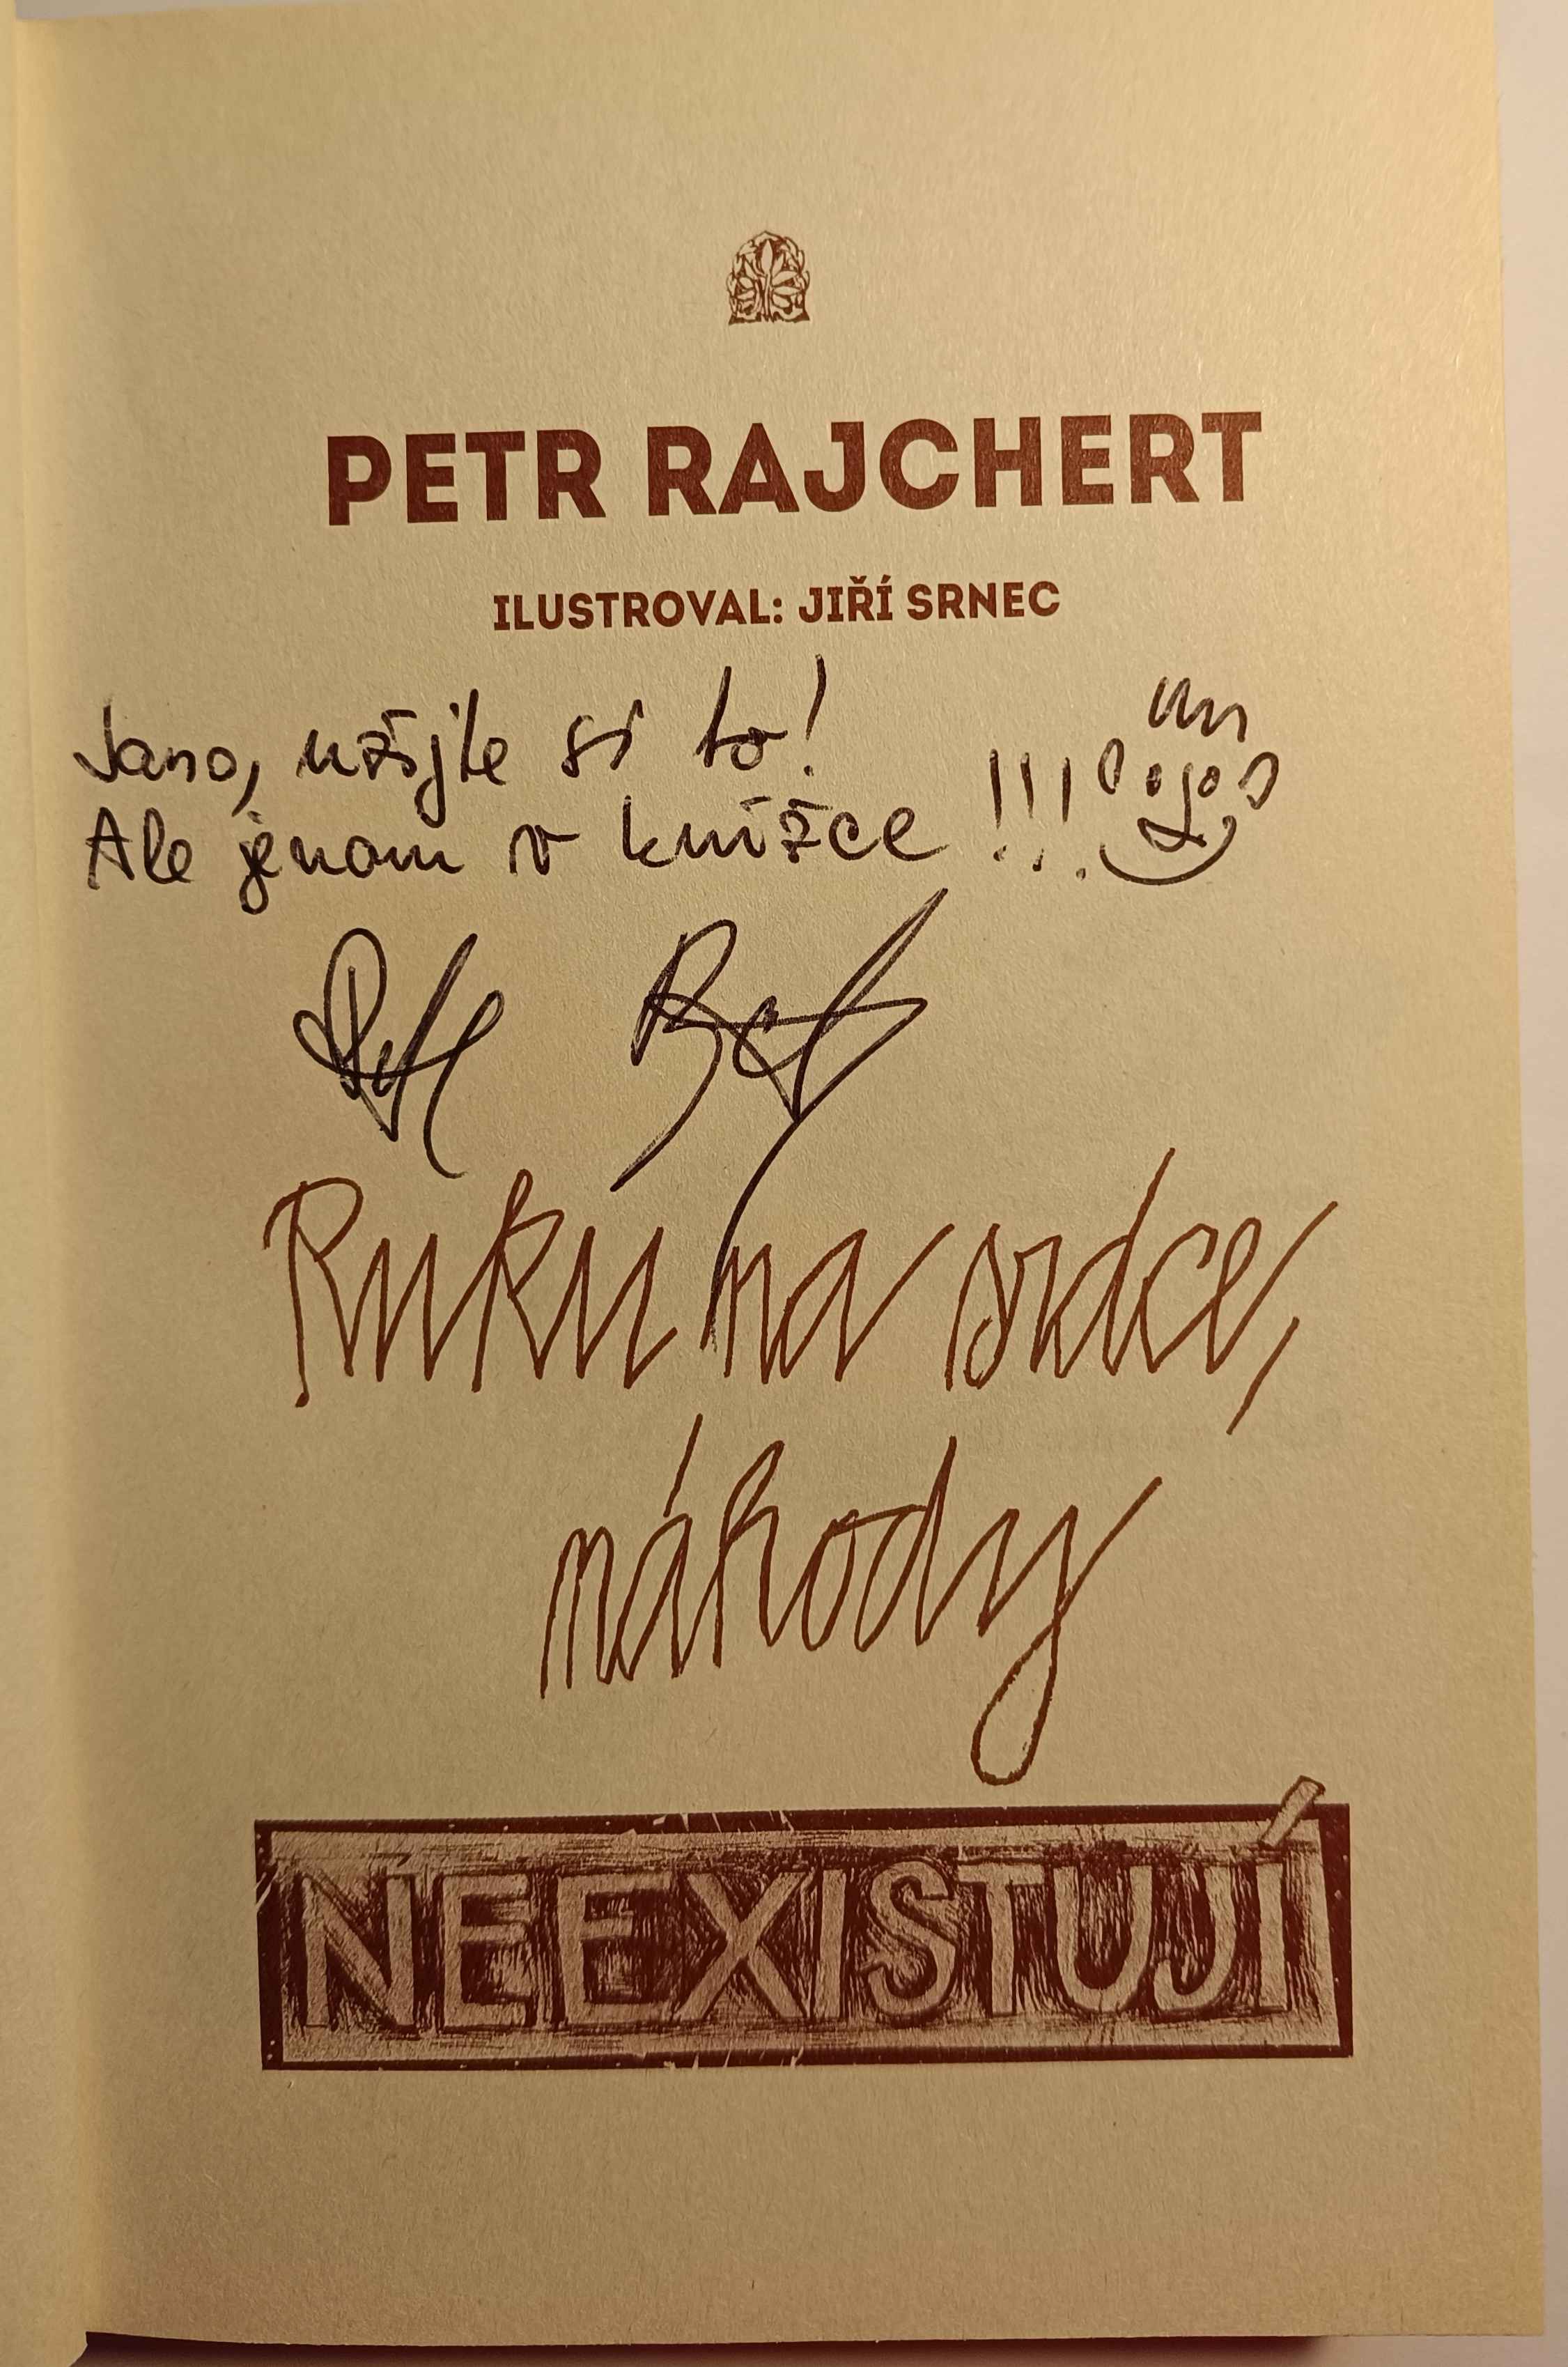 PETR RAJCHERT
ILUSTROVAL: JIŘÍ SRNEC
Jano, užijte si to!
Ale jenom v knížce !!!
Ruku na srdce,
náhody
NEEXISTUJÍ